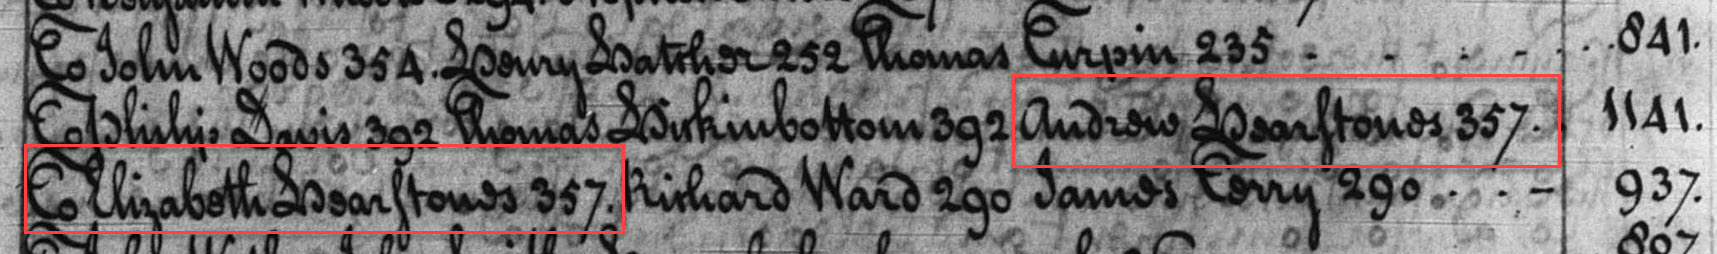 To John Woods 354. Henry Hatcher 252 Thomas Turpin 235 - - - - 841.
To Philip Davis 392 Thomas Hickinbottom 392 Andrew Hearſtones 357. 1141.
To Elizabeth Hearſtones 357. Richard Ward 290 James Terry 290 . . - 937.